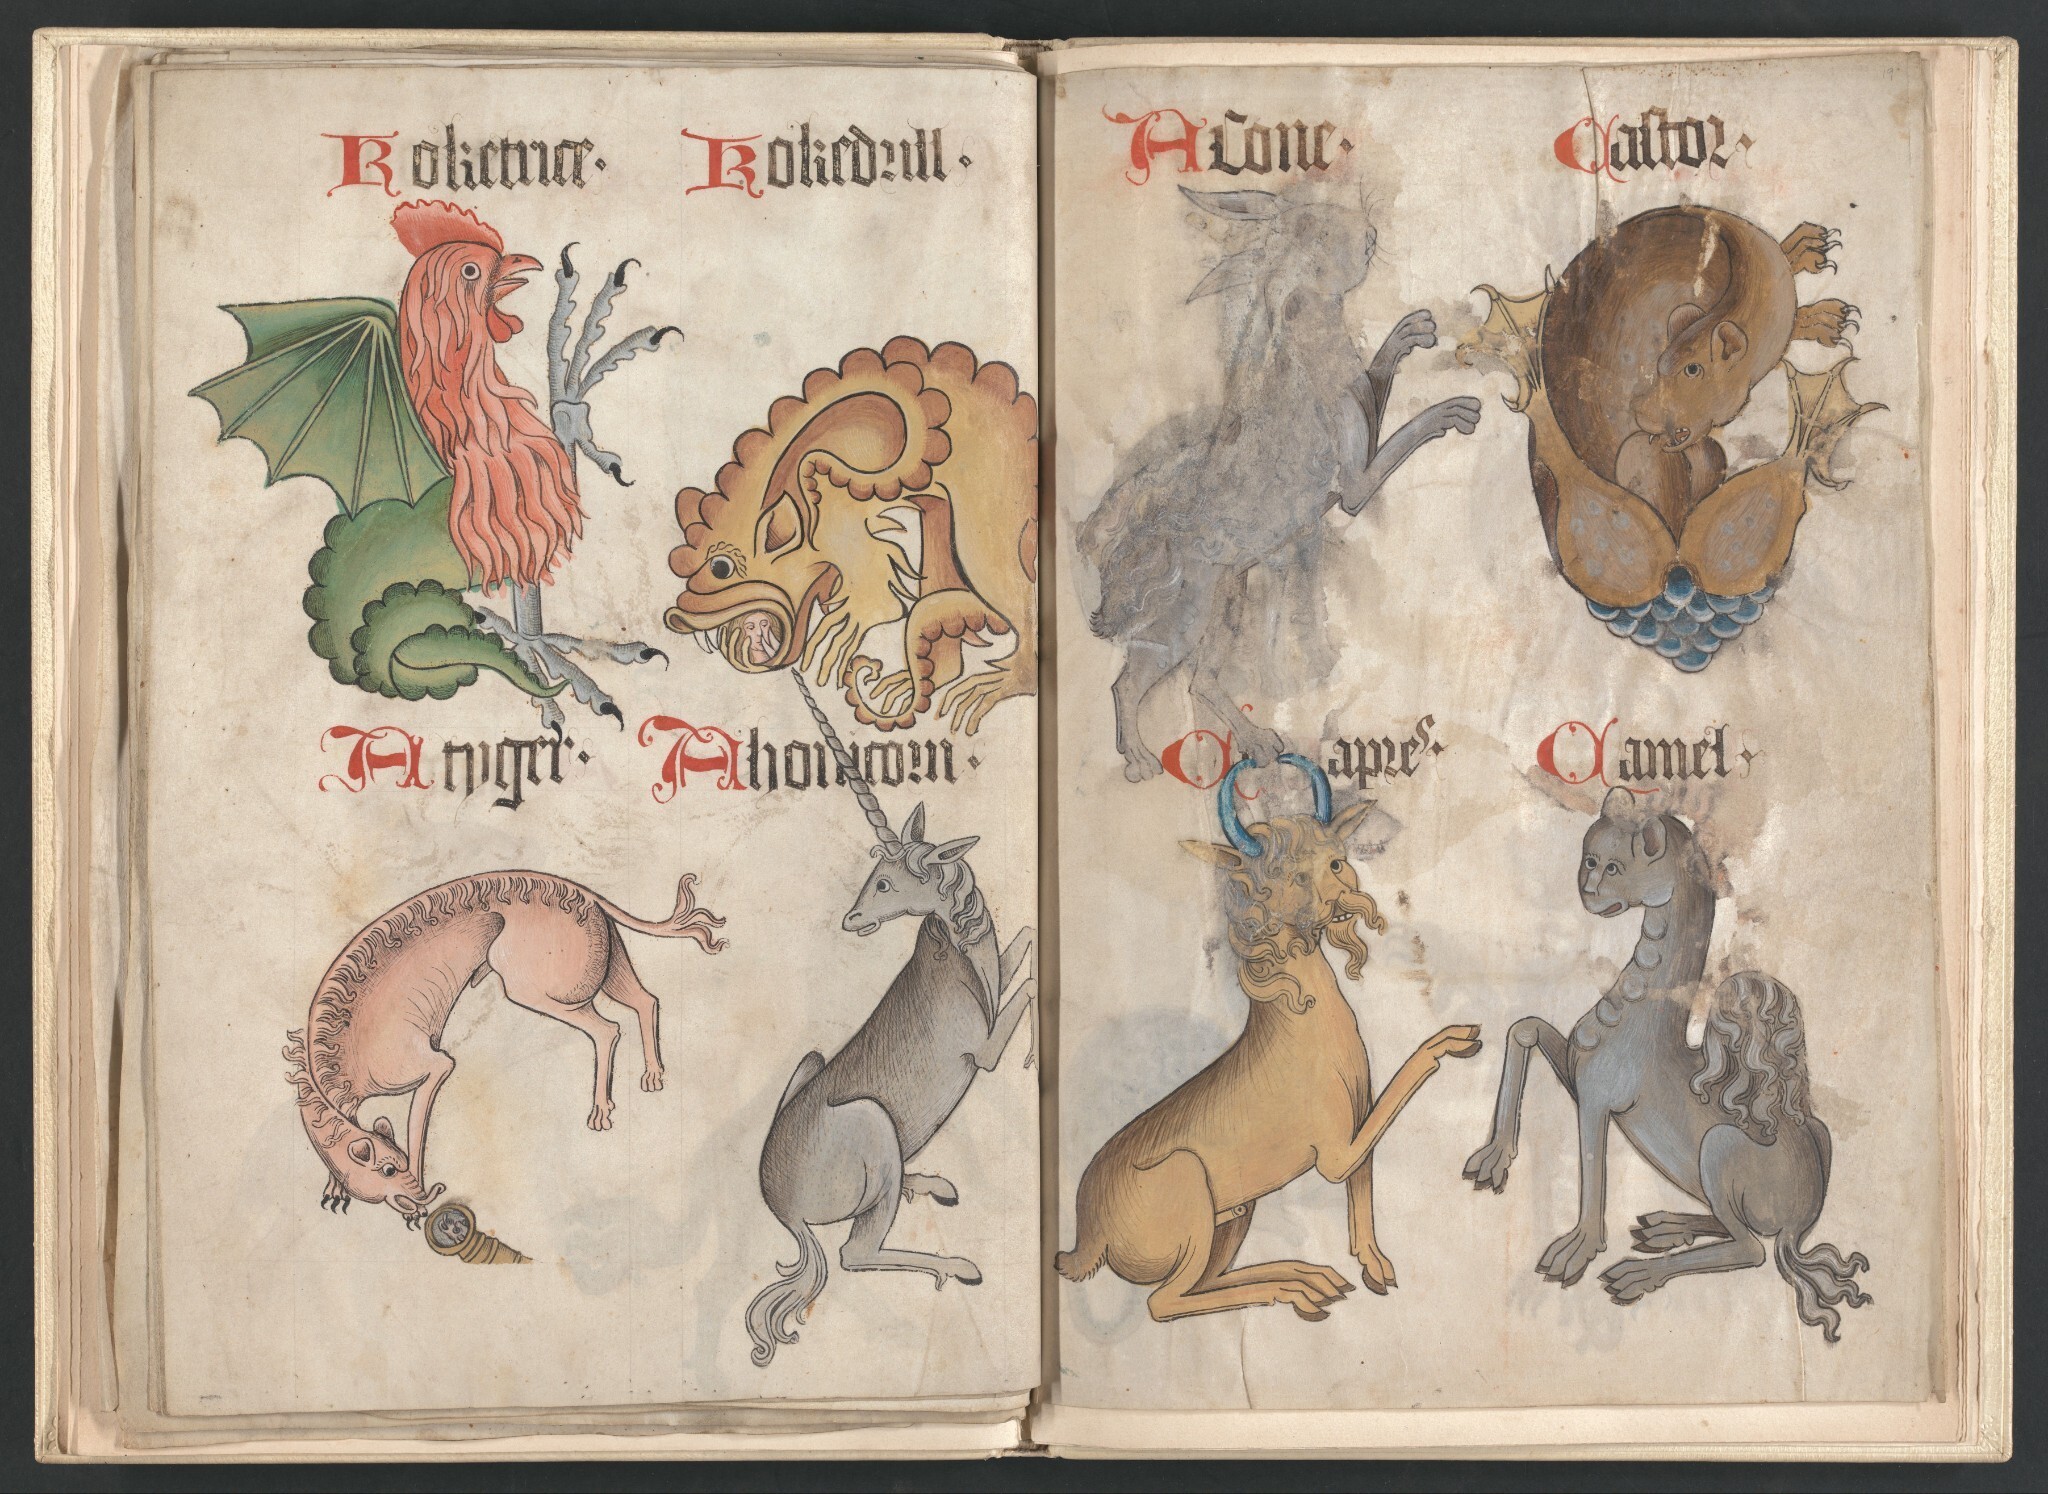 Koketrice·
Kokedrill·
A tyger·
A hornicorn·
A Cone·
Castor·
Capre
Camel·